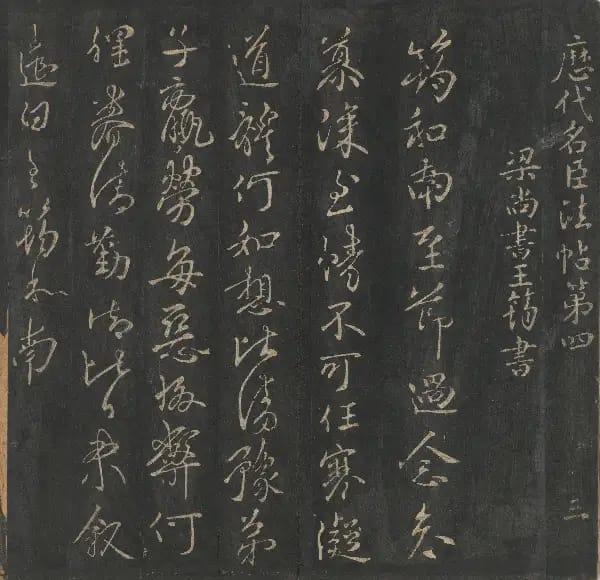 歷代名臣法帖第四
三
梁尚書王筠書
筠和南至節過念哀
慕深至情不可任寒凝
道體何如想比清豫弟
子羸勞每惡扳弊何
理眷清勸御比未叙
遣白王筠和南